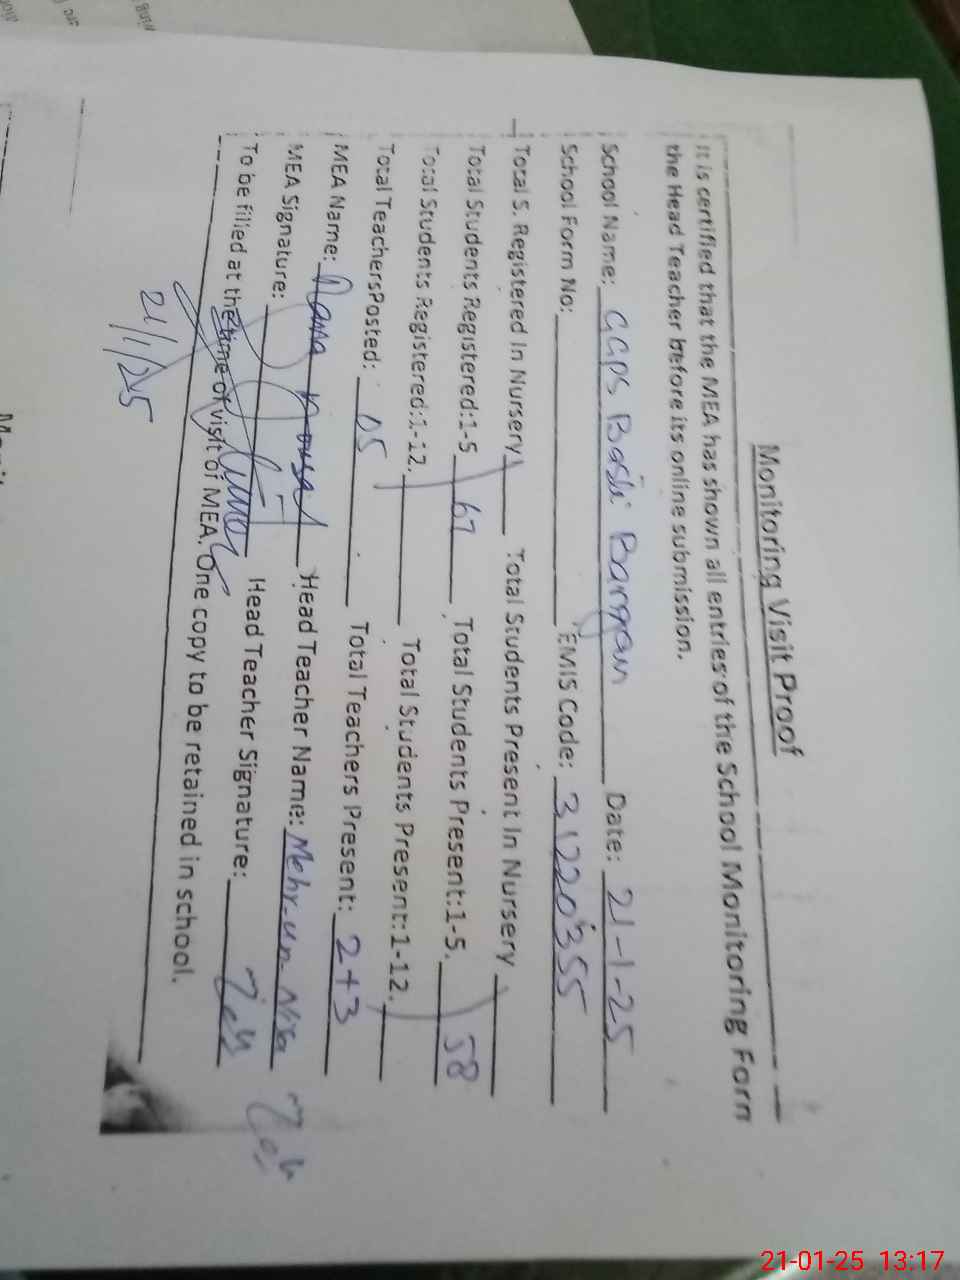 Monitoring Visit Proof
It is certified that the MEA has shown all entries of the School Monitoring Form
the Head Teacher before its online submission.
School Name: GGPS Basti Date: 21-1-25
School Form No: EMIS Code: 31220355
Total S. Registered In Nursery Total Students Present In Nursery
Total Students Registered:1-5 67 Total Students Present:1-5. 58
Total Students Registered:1-12. Total Students Present:1-12.
Total TeachersPosted: 05 Total Teachers Present: 2+3
MEA Name: Rana Head Teacher Name: Mehr-un-Nisa
MEA Signature: Head Teacher Signature:
To be filled at the time of visit of MEA. One copy to be retained in school.
21/1/25
21-01-25 13:17